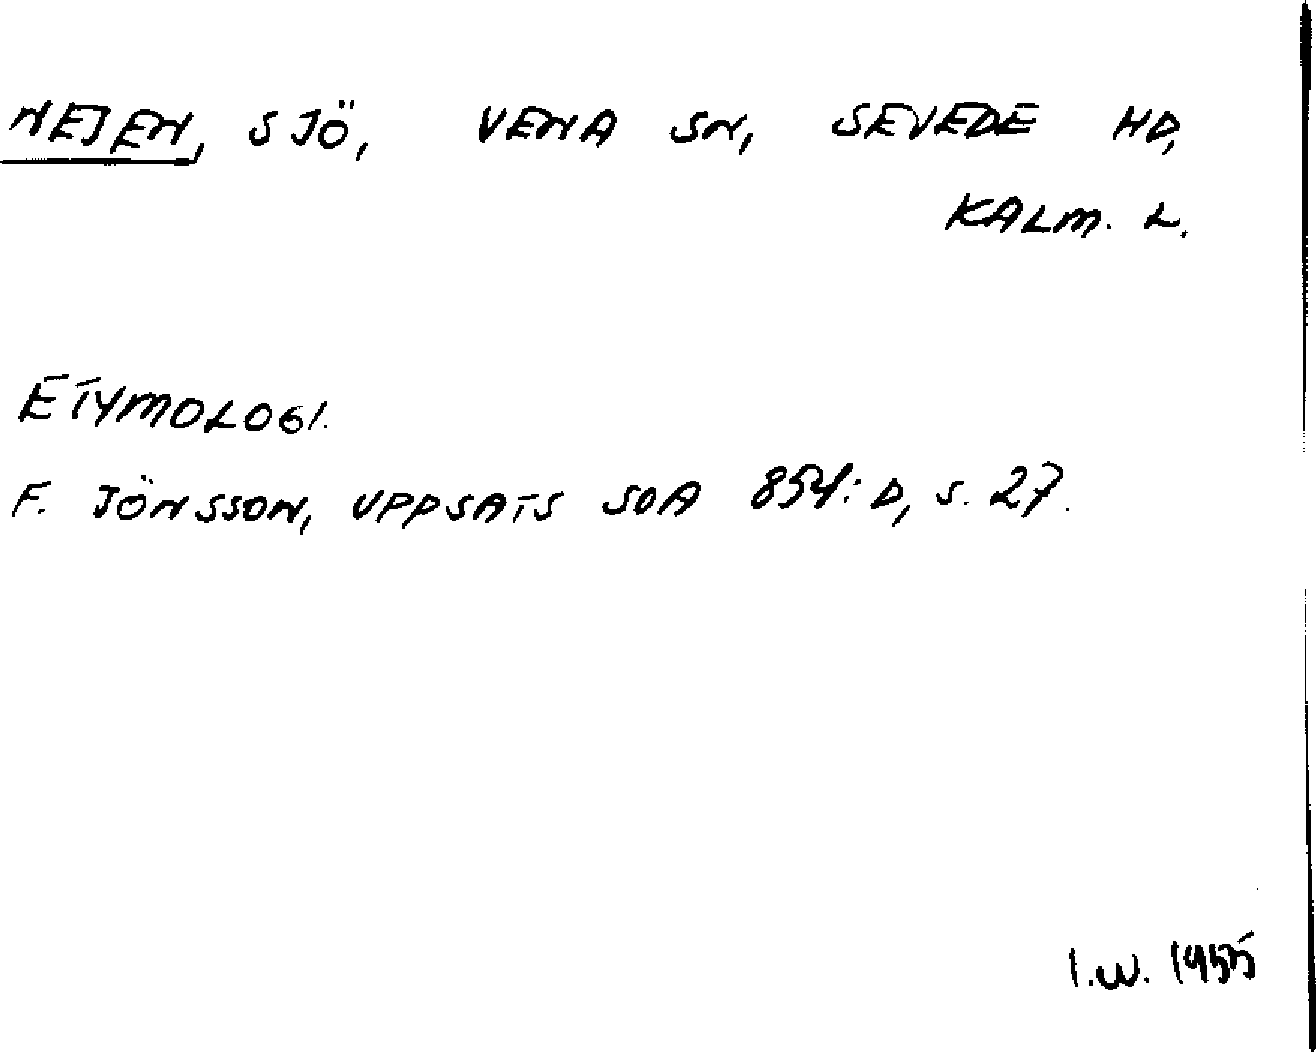 NEJEN, SJÖ, VENA SN, SEVEDE HD,
KALM. L.
ETYMOLOGI.
F. JÖNSSON, UPPSATS SOA 854:D, S. 27.
I.W. 1955